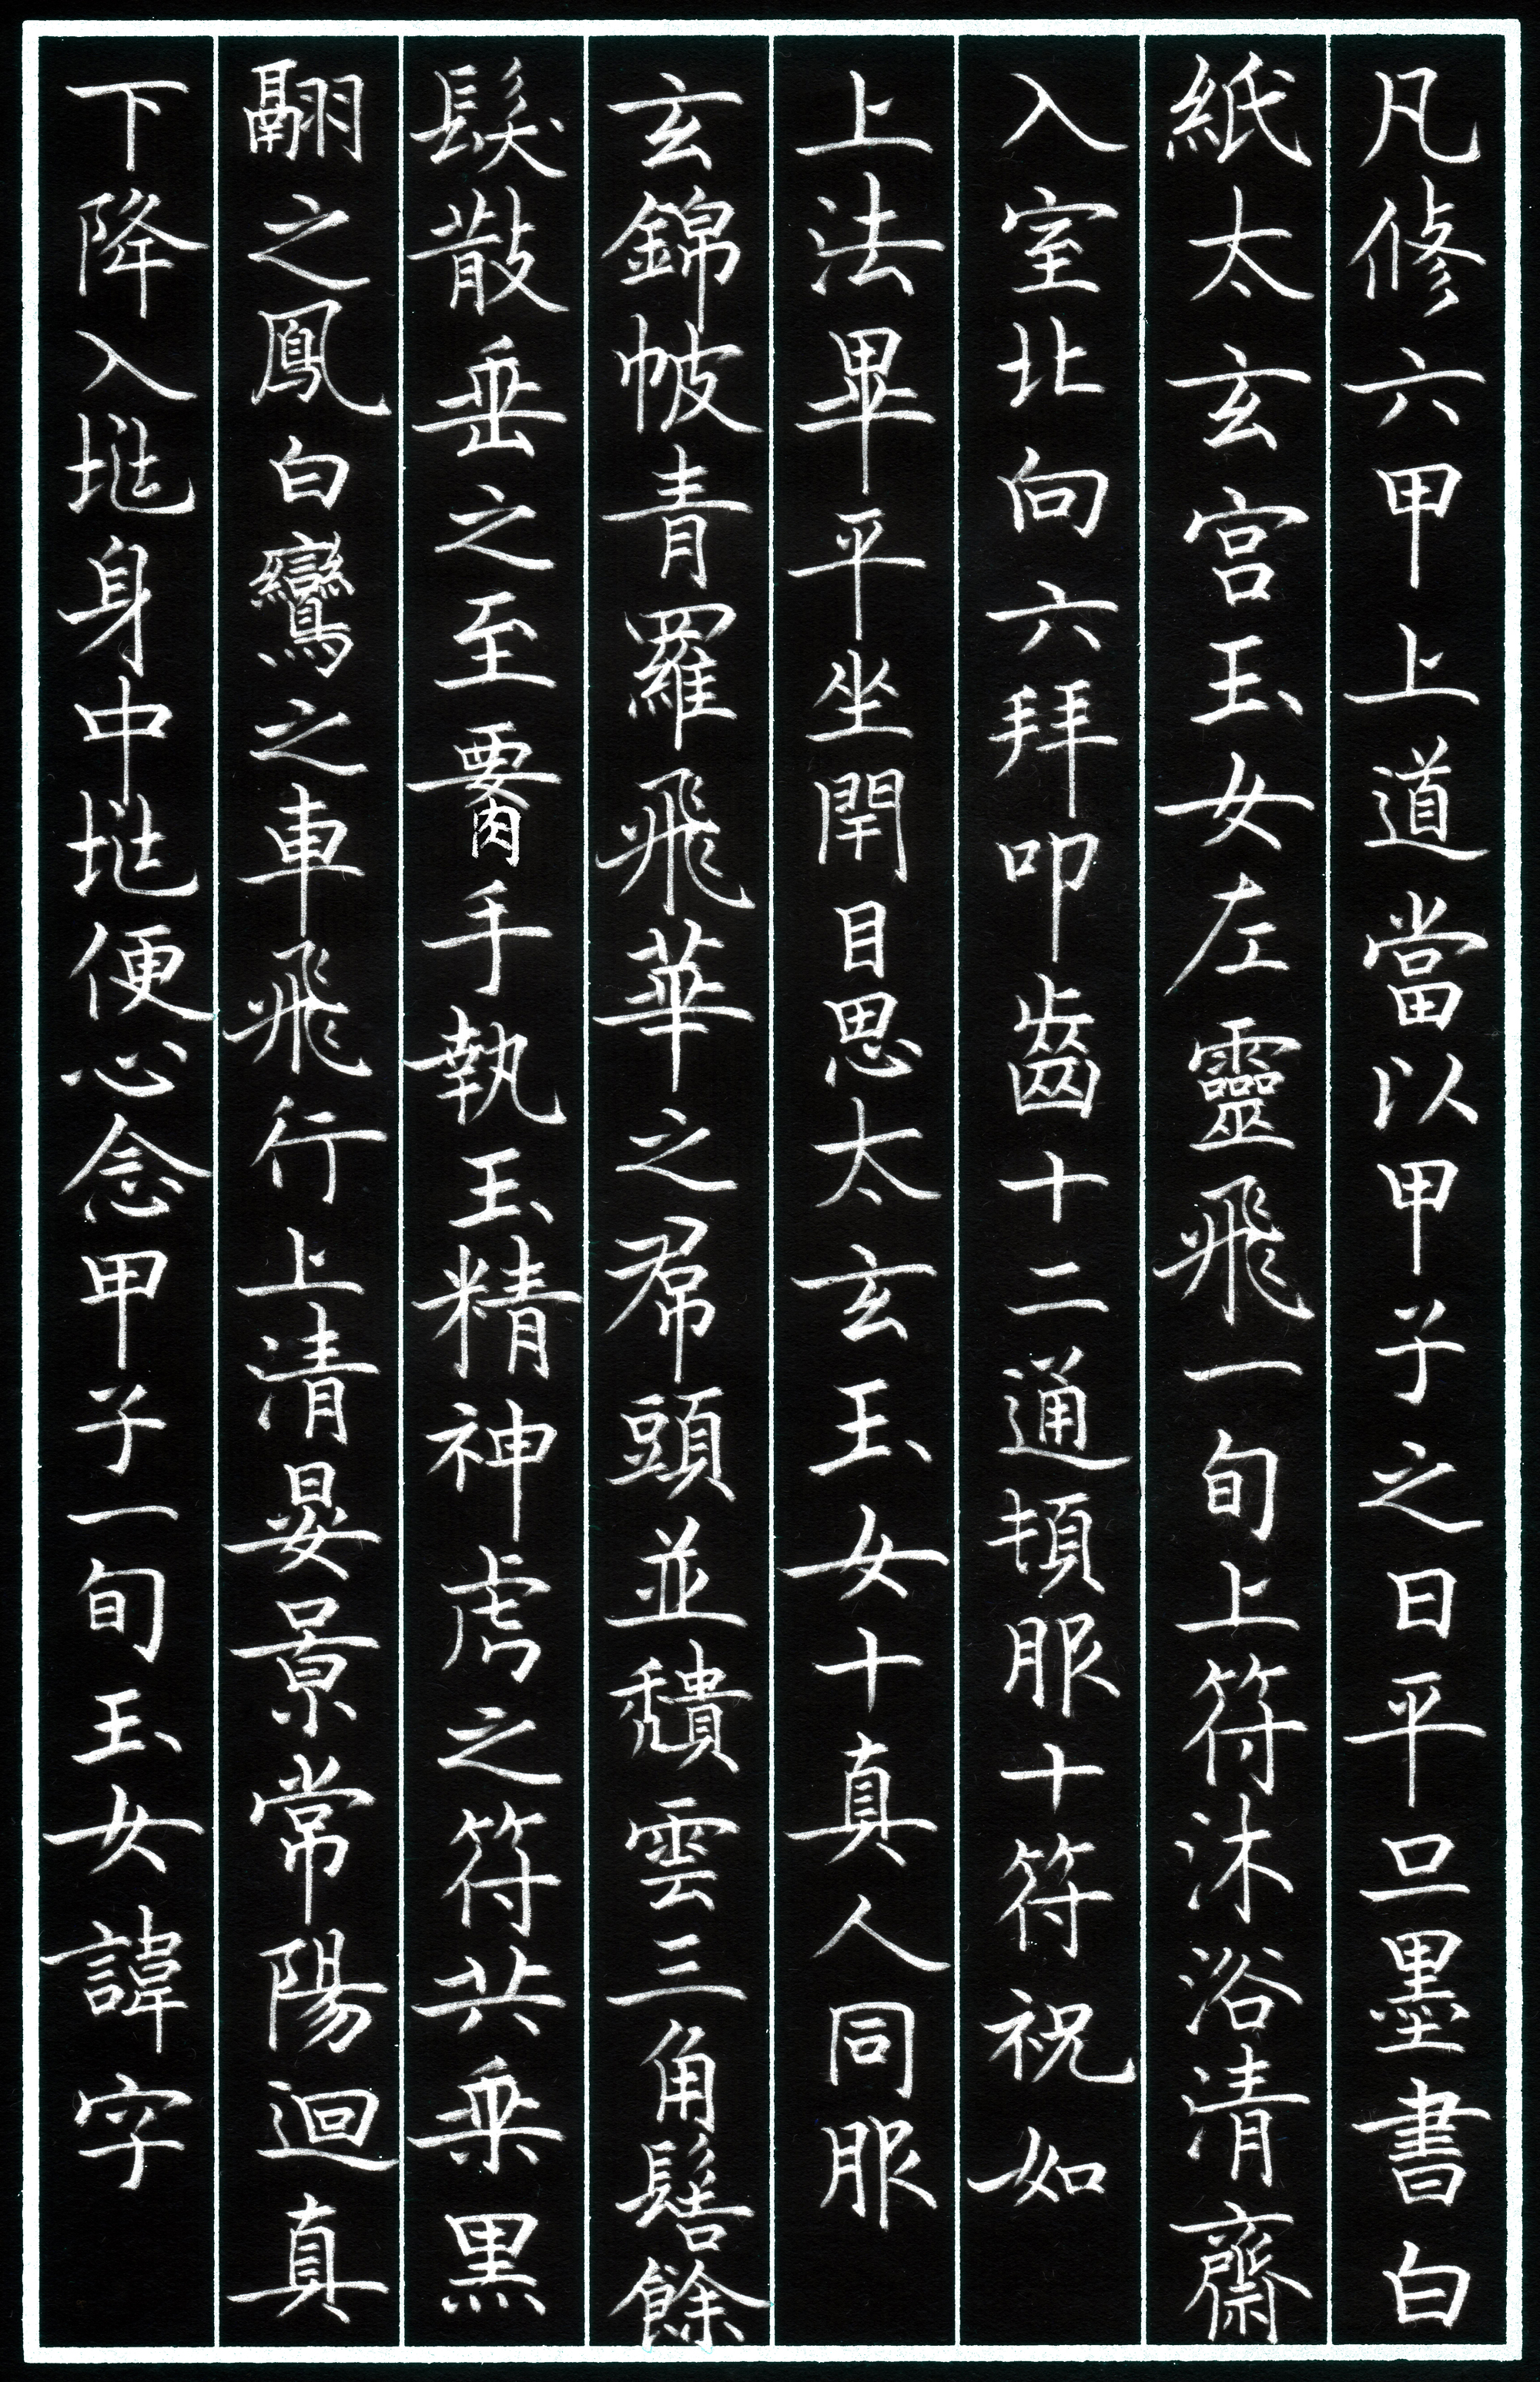 凡修六甲上道當以甲子之日平旦墨書白
紙太玄宮玉女左靈飛一旬上符沐浴清齋
入室北向六拜叩齒十二通頓服十符祝如
上法畢平坐閉目思太玄玉女十真人同服
玄錦帔青羅飛華之帬頭並頹雲三角髻餘
髮散垂之至要手執玉精神虎之符共乘黑
翮之鳳白鸞之車飛行上清晏景常陽迴真
下降入地身中地便心念甲子一旬玉女諱字